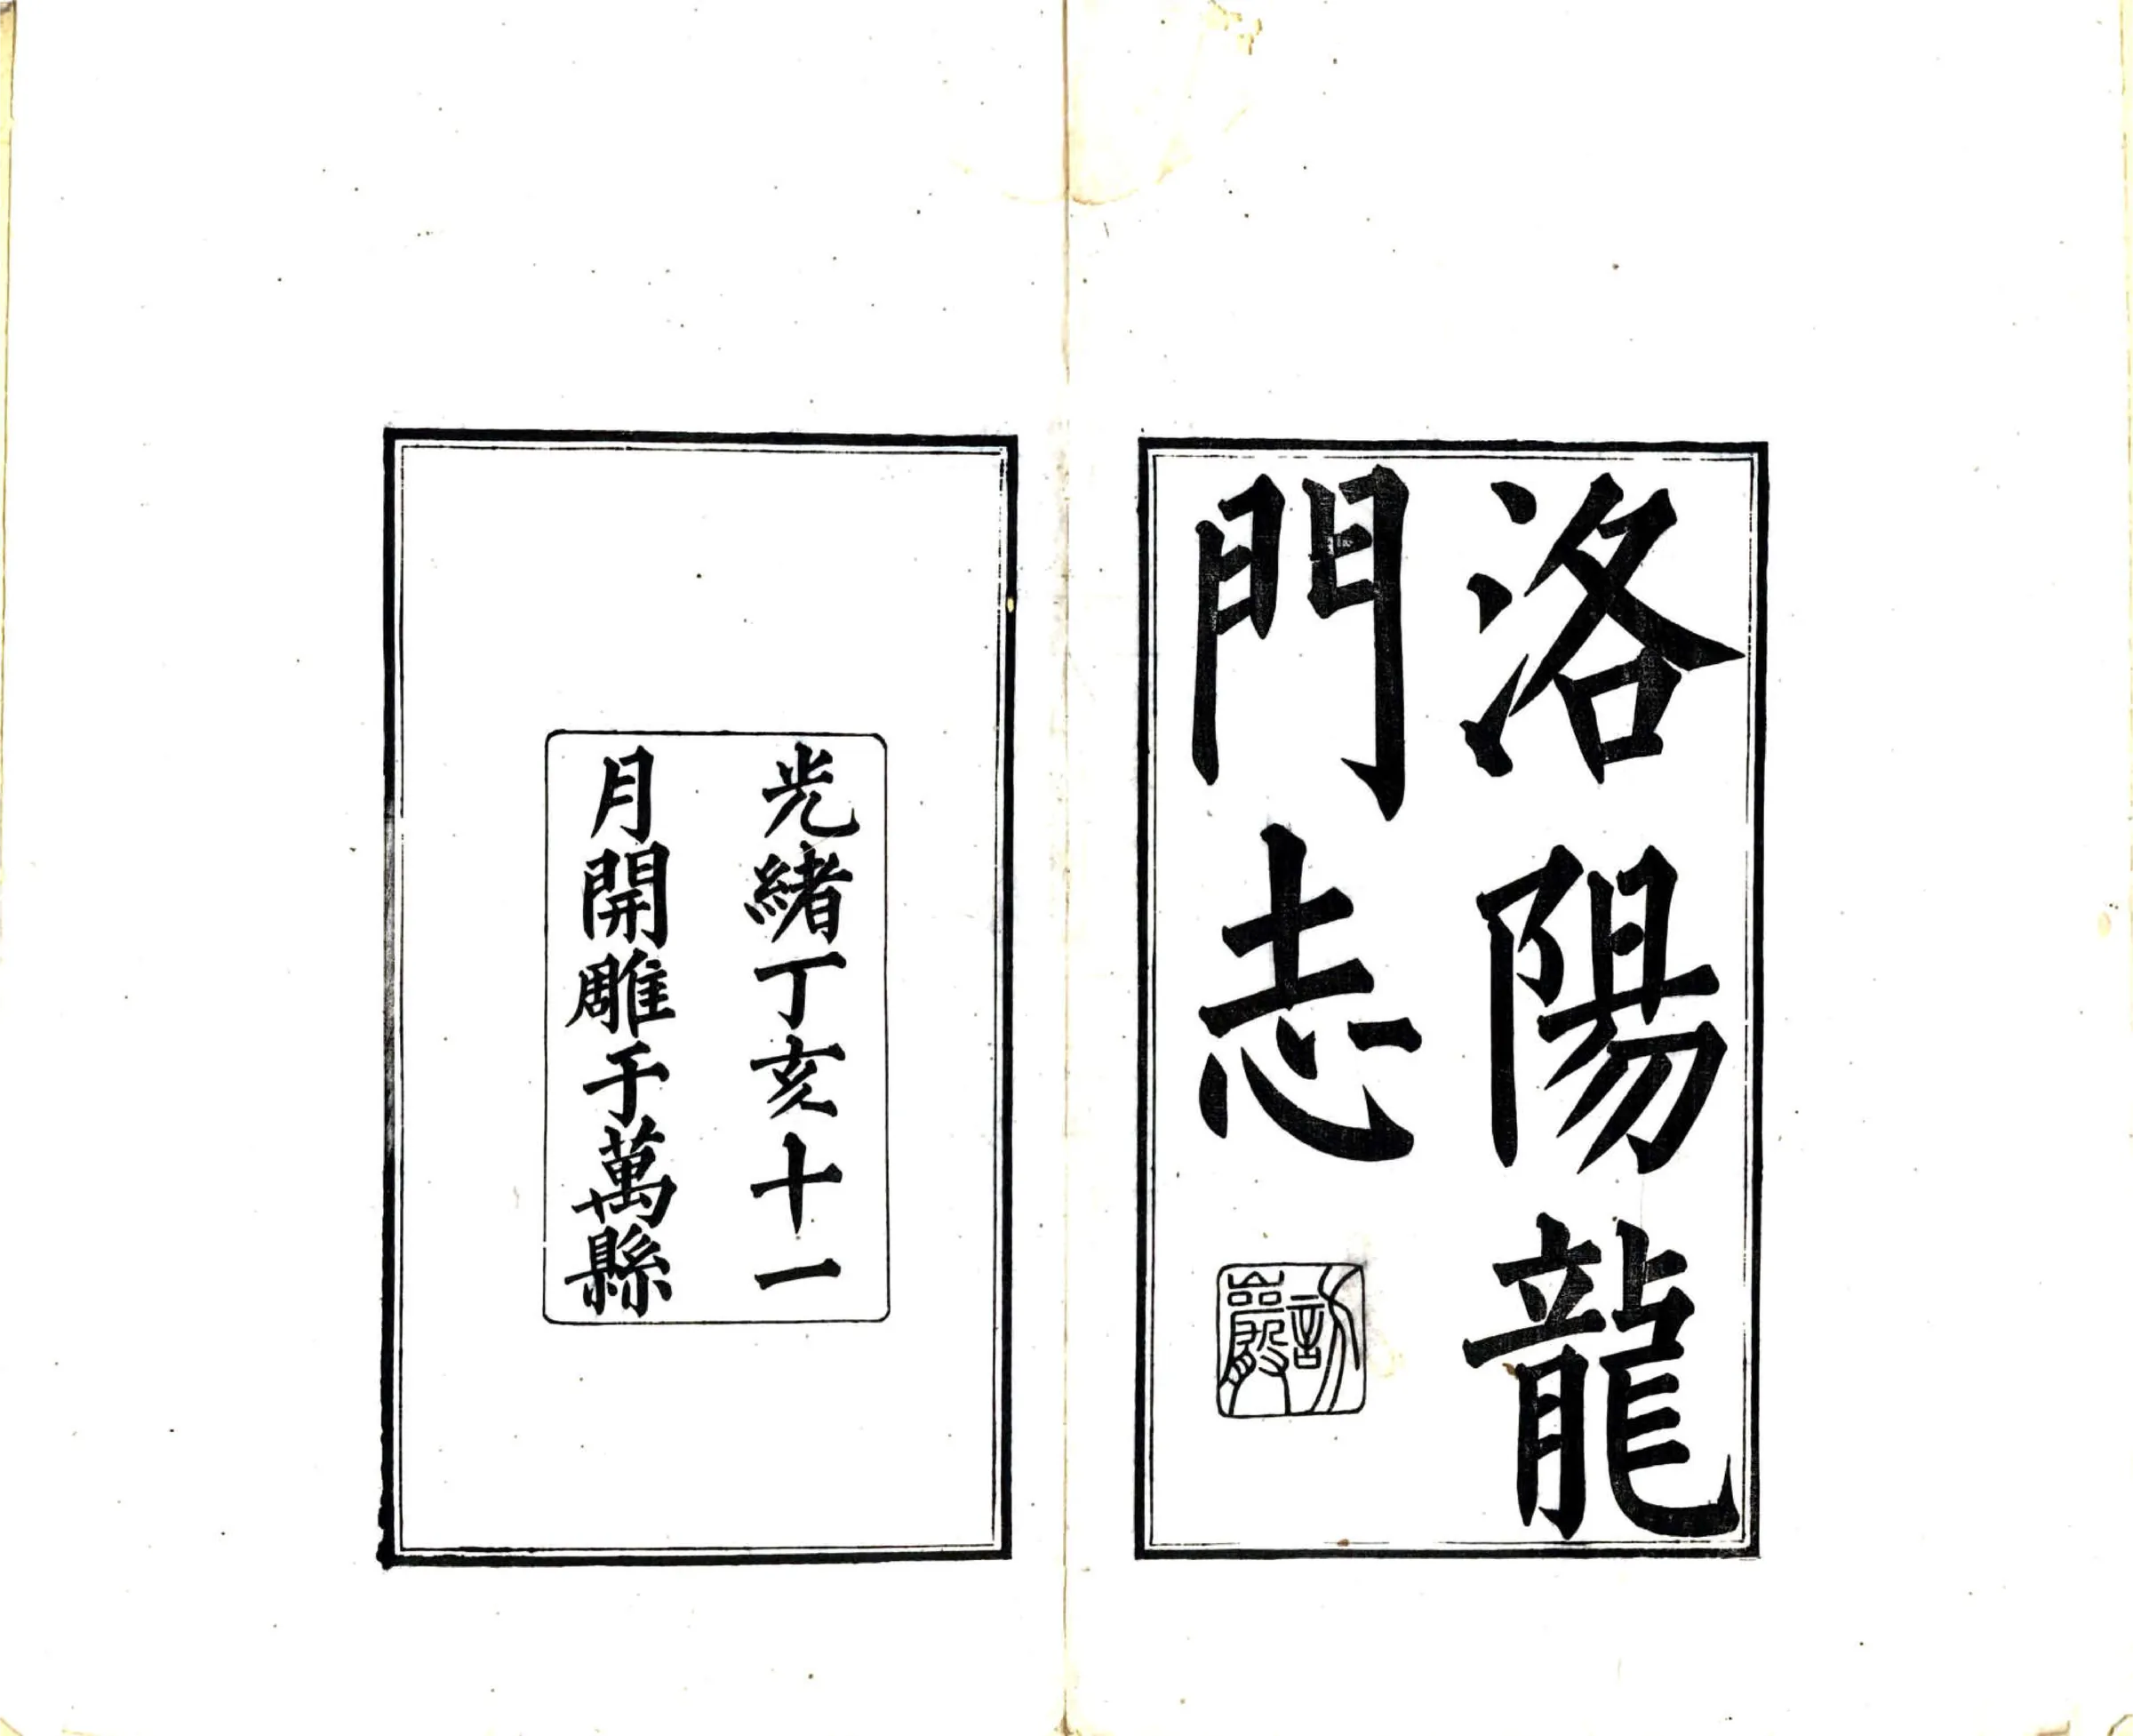 洛陽龍
門志
訪巖
光緒丁亥十一
月開雕于萬縣